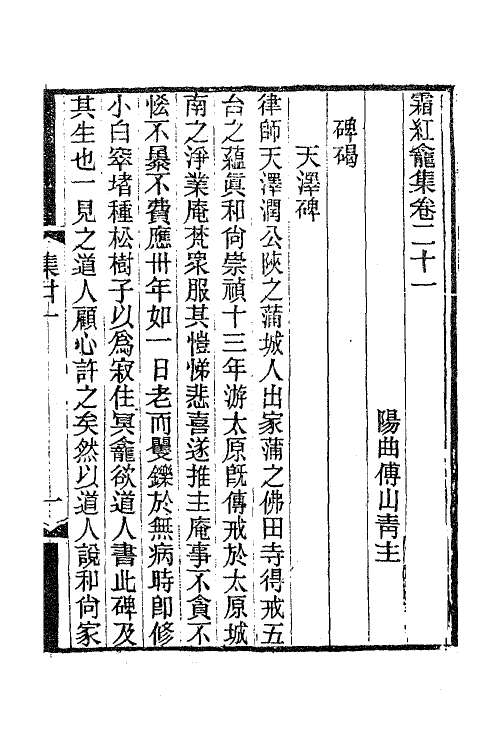 霜紅龕集卷二十一
陽曲傅山靑主
碑碣
天澤碑
律師天澤潤公陝之蒲城人出家蒲之佛田寺得戒五
台之蘊眞和尙崇禎十三年游太原旣傳戒於太原城
南之淨業庵梵眾服其愷悌悲喜遂推主庵事不貪不
恡不暴不費應卅年如一日老而矍鑠於無病時卽修
小白窣堵種松樹子以爲寂住冥龕欲道人書此碑及
其生也一見之道人顧心許之矣然以道人說和尙家
集廿一
一